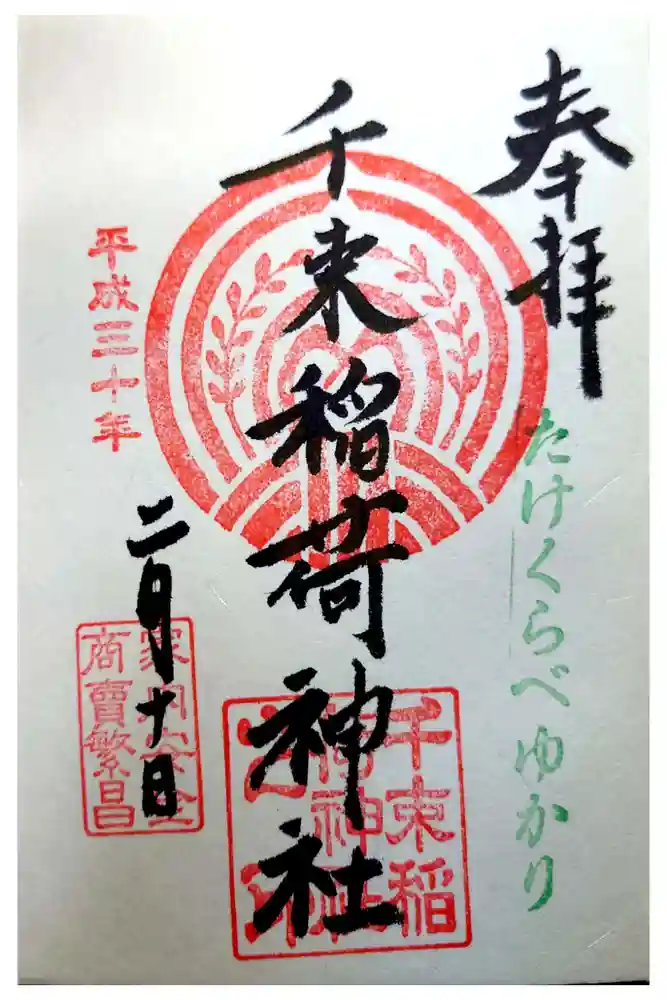 奉拝
たけくらべゆかり
千束稲荷神社
千束稲
荷神社
平成三十年
二月十日
家内安全
商賣繁昌